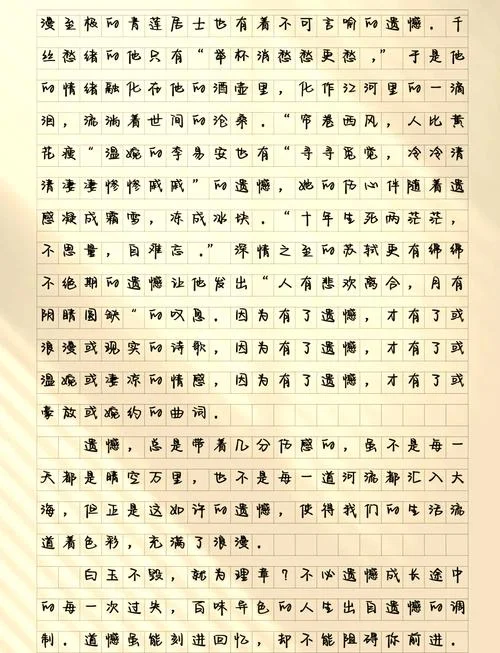 漫至极的青莲居士也有着不可言喻的遗憾．千
丝愁绪的他只有“举杯消愁愁更愁，”于是他
的情绪融化在他的酒壶里，化作江河里的一滴
泪，流淌着世间的沧桑．“帘卷西风，人比黄
花瘦“温婉的李易安也有“寻寻觅觉，冷冷清
清凄凄惨惨戚戚”的遗憾，她的伤心伴随着遗
憾凝成霜雪，冻成冰块．“十年生死两茫茫，
不思量，自难忘．”深情之至的苏轼更有绵绵
不绝期的遗憾让他发出“人有悲欢离合，月有
阴晴圆缺“的叹息．因为有了遗憾，才有了或
浪漫或现实的诗歌，因为有了遗憾，才有了或
温婉或凄凉的情感，因为有了遗憾，才有了或
豪放或婉约的曲词．
遗憾，总是带着几分伤感的，虽不是每一
天都是晴空万里，也不是每一道河流都汇入大
海，但正是这如许的遗憾，使得我们的生活流
道着色彩，充满了浪漫．
白玉不毁，孰为理章？不必遗憾成长途中
的每一次过失，百味异色的人生出自遗憾的调
制．道憾虽能刻进回忆，却不能阻碍你前进．